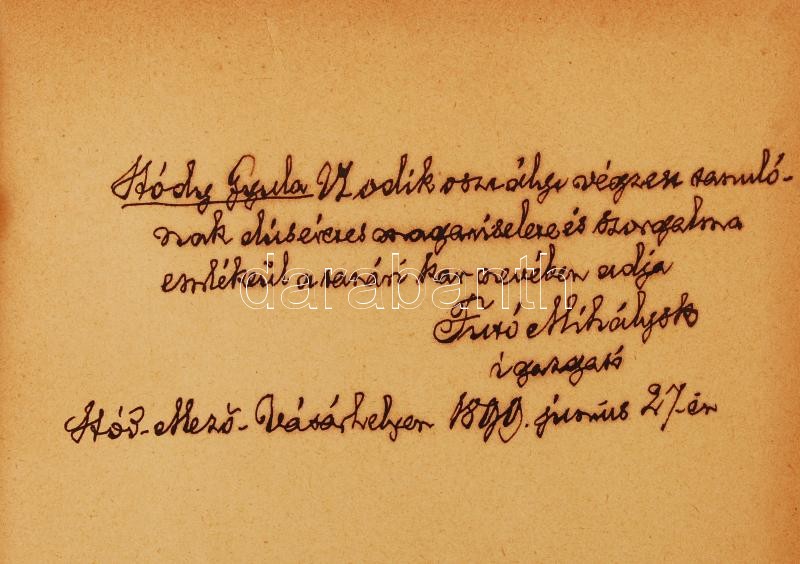 Hódy Gyula VI odik osztályt végzett tanuló-
nak dícséretes magaviselete és szorgalma
emlékéül a tanári kar nevében adja
Futó Mihály sk
igazgató
Hód-Mező-Vásárhelyen 1890. június 27-én
darabanth